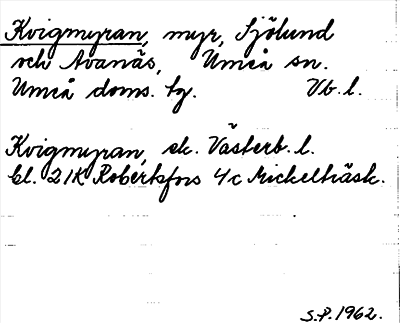 Kvigmyran, myr, Sjölund
och Avanäs, Umeå sn.
Umeå doms. tg. Vb. l.
Kvigmyran, ek. Västerb. l.
bl. 21K Robertsfors 4c Mickelträsk.
S.P. 1962.